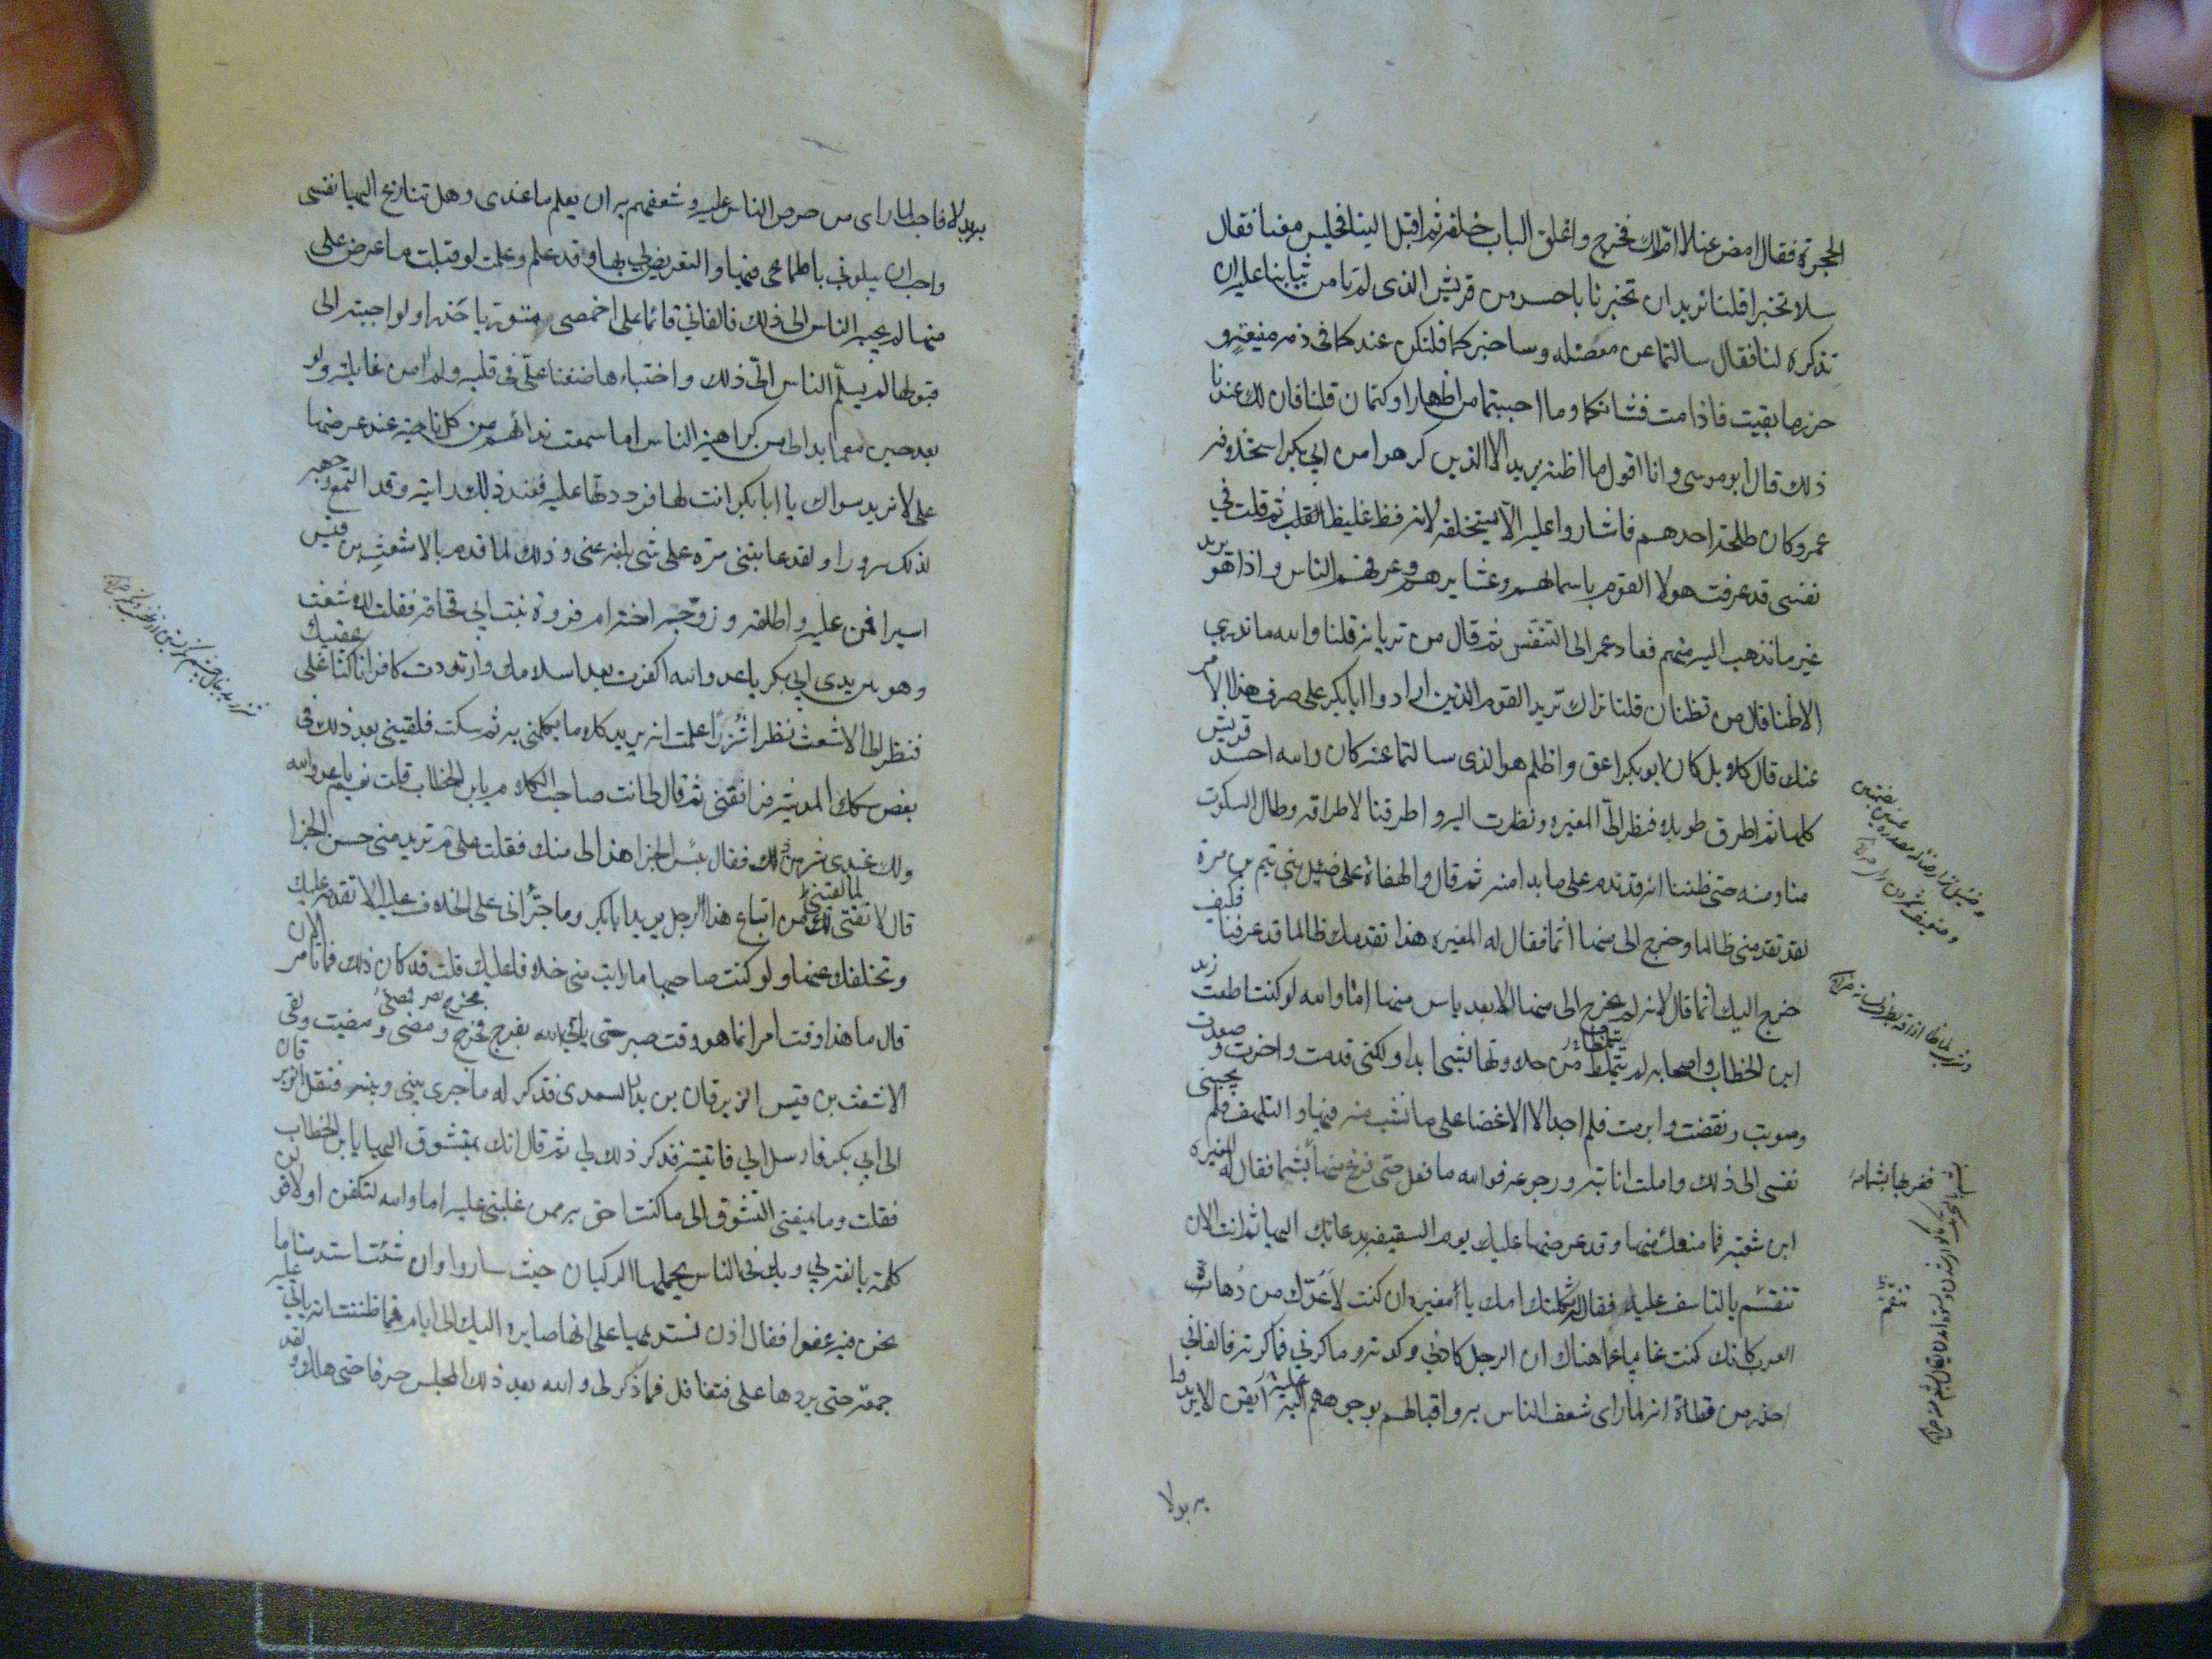 الحجرة فقال امض عنا لا ام لك فخرج واغلق الباب خلفه ثم اقبل الينا فجلس معنا فقال
سلا تخبرا قلنا نريد ان تخبرنا باحسد من قريش الذى لم تامن ثيابنا عليه ان
تذكره لنا فقال سالتما عن معضله وساخبركما فليكن عندكما فى ذمه منيعة و
حرز ما بقيت فاذا مت فشانكما وما احببتما من اظهار او كتمان قلنا فان لك عندنا
ذلك قال ابو موسى وانا اقول ما اظنه يريد الا الذين كرهوا من ابي بكر استخلافه
عمر وكان طلحة احدهم فاشاروا عليه الا يستخلفه لانه فظ غليظ القلب ثم قلت في
نفسى قد عرفت هولا القوم باسمائهم وعشايرهم وعرفهم الناس واذا هو يريد
غير ما نذهب اليه منهم فعاد عمر الى التنفس ثم قال من تريانه قلنا والله ما ندري
الا ظنا قال من تظنان قلنا نراك تريد القوم الذين ارادوا ابا بكر على صرف هذا الامر
عنك قال كلا بل كان ابو بكر اعق واظلم هو الذى سالتما عنه كان والله احسد قريش
كلها ثم اطرق طويلا فنظر الىّ المغيره ونظرت اليه واطرقنا لاطراقه وطال السكوت
منا ومنه حتى ظننا انه قد ندم على ما بدا منه ثم قال والهفاه على ضئيل بنى تيم بن مرة
لقد تقدمنى ظالما وخرج الى منها اثما فقال له المغيره هذا تقدمك ظالما قد عرفناه فكيف
خرج اليك اثما قال لانه لم يخرج الى منها الا بعد ياس منها اما والله لو كنت اطعت زيد
ابن الخطاب واصحابه لم يتلمظ من حلاوتها بشى ابدا ولكنى قدمت واخرت و صعدت
وصوبت ونقضت وابرمت فلم اجد الا الاغضا على ما نشب منه فيها والتلهف فلم يجبنى
نفسى الى ذلك واملت انابته ورجوعه فوالله ما فعل حتى فرغ منها بشما فقال له المغيره
ابن شعبه فما منعك منها وقد عرضها عليك يوم السقيفه بدعائك اليها ثم انت الان
تنقم بالتاسف عليه فقال له ثكلتك امك يا مغيره ان كنت لاعدّك من دهاة
العرب كانك كنت غايبا عما هناك ان الرجل كادني وكدته وماكرني فماكرته فالفاني
احذر من قطاة انه لما راى شعف الناس به واقبالهم بوجوههم اليه ايقن الا يريدوا
به بدلا
فغربها بشمامه
تنقم
به بدلا فاحب لما راى من حرص الناس عليه وشعفهم به ان يعلم ما عندى وهل تنازع اليها نفسى
واحب ان يبلوني باطماعى فيها والتعريض لي بها وقد علم وعلمت لو قبلت ما عرض على
منها لم يجبه الناس الى ذلك فالفاني قائما على اخمصى متوترا حذرا ولو اجبته الى
قبولها لم يسلّم الناس الىّ ذلك واختباها ضغنا علىّ فى قلبه ولم امن غايلته ولو
بعد حين مع ما بدا لى من كراهية الناس اما سمعت نداهم من كل ناحية عند عرضها
على لا نريد سواك يا ابا بكر انت لها فرددتها عليه فعند ذلك رايته وقد التمع وجهه
لذلك سرورا ولقد عاتبنى مرة على شى بلغه عنى وذلك لما قدم بالاشعث بن قيس
اسيرا فمن عليه واطلقه وزوجه اخته ام فروة بنت ابي قحافة فقلت للاشعث
وهو بين يدى ابي بكر يا عدو الله اكفرت بعد اسلامك وارتددت كافرا ناكثا على عقبيك
فنظر الى الاشعث نظرا شزرا علمت انه يريد كلاما يكلمنى به ثم سكت فلقينى بعد ذلك فى
بعض سكك المدينة فرافقنى ثم قال لى انت صاحب الكلام يا ابن الخطاب قلت نعم يا عدو الله
ولك عندى شر من ذلك فقال بئس الجزا هذا الى منك فقلت على م تريد منى حسن الجزا
قال لانفتى لك من اتباع هذا الرجل يريد ابا بكر وما جرّأنى على الخلاف عليه الا تقدمه عليك
وتخلفك عنها ولو كنت صاحبها ما رايت منى خلافا عليك قلت قد كان ذلك فما تامر الان
قال ما هذا وقت امر انما هو وقت صبر حتى ياتى الله بفرج ومخرج فمضى ومضيت ولقى
الاشعث بن قيس الزبرقان بن بدر السعدى فذكر له ما جرى بينى وبينه فنقل الزبرقان
الى ابي بكر فارسل الي فاتيته فذكر ذلك لي ثم قال انك لمتشوق اليها يا ابن الخطاب
فقلت وما يمنعنى التشوق الى ما كنت احق به ممن غلبنى عليه اما والله لتكفن او لاقولن
كلمة بالغة بي وبك فى الناس يحملها الركبان حيث ساروا وان شئت استدمنا ما
نحن فيه عفوا فقال اذن نستديمها على انها صايره اليك الى ايام فما ظننت انه ياتي عليه
جمعة حتى يردها على فتغافل فما ذكر لى والله بعد ذلك المجلس حرفا حتى هلك ولقد